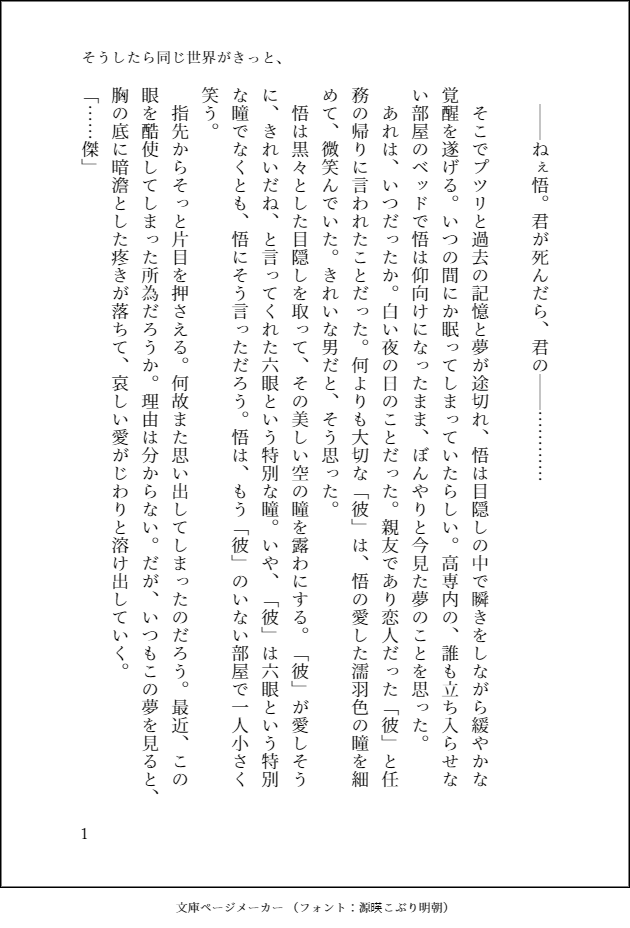 そうしたら同じ世界がきっと、
――ねぇ悟。君が死んだら、君の――…………
そこでプツリと過去の記憶と夢が途切れ、悟は目隠しの中で瞬きをしながら緩やかな
覚醒を遂げる。いつの間にか眠ってしまっていたらしい。高専内の、誰も立ち入らせな
い部屋のベッドで悟は仰向けになったまま、ぼんやりと今見た夢のことを思った。
あれは、いつだったか。白い夜の日のことだった。親友であり恋人だった「彼」と任
務の帰りに言われたことだった。何よりも大切な「彼」は、悟の愛した濡羽色の瞳を細
めて、微笑んでいた。きれいな男だと、そう思った。
悟は黒々とした目隠しを取って、その美しい空の瞳を露わにする。「彼」が愛しそう
に、きれいだね、と言ってくれた六眼という特別な瞳。いや、「彼」は六眼という特別
な瞳でなくとも、悟にそう言っただろう。悟は、もう「彼」のいない部屋で一人小さく
笑う。
指先からそっと片目を押さえる。何故また思い出してしまったのだろう。最近、この
眼を酷使してしまった所為だろうか。理由は分からない。だが、いつもこの夢を見ると、
胸の底に暗澹とした疼きが落ちて、哀しい愛がじわりと溶け出していく。
「……傑」
1
文庫ページメーカー（フォント：源暎こぶり明朝）